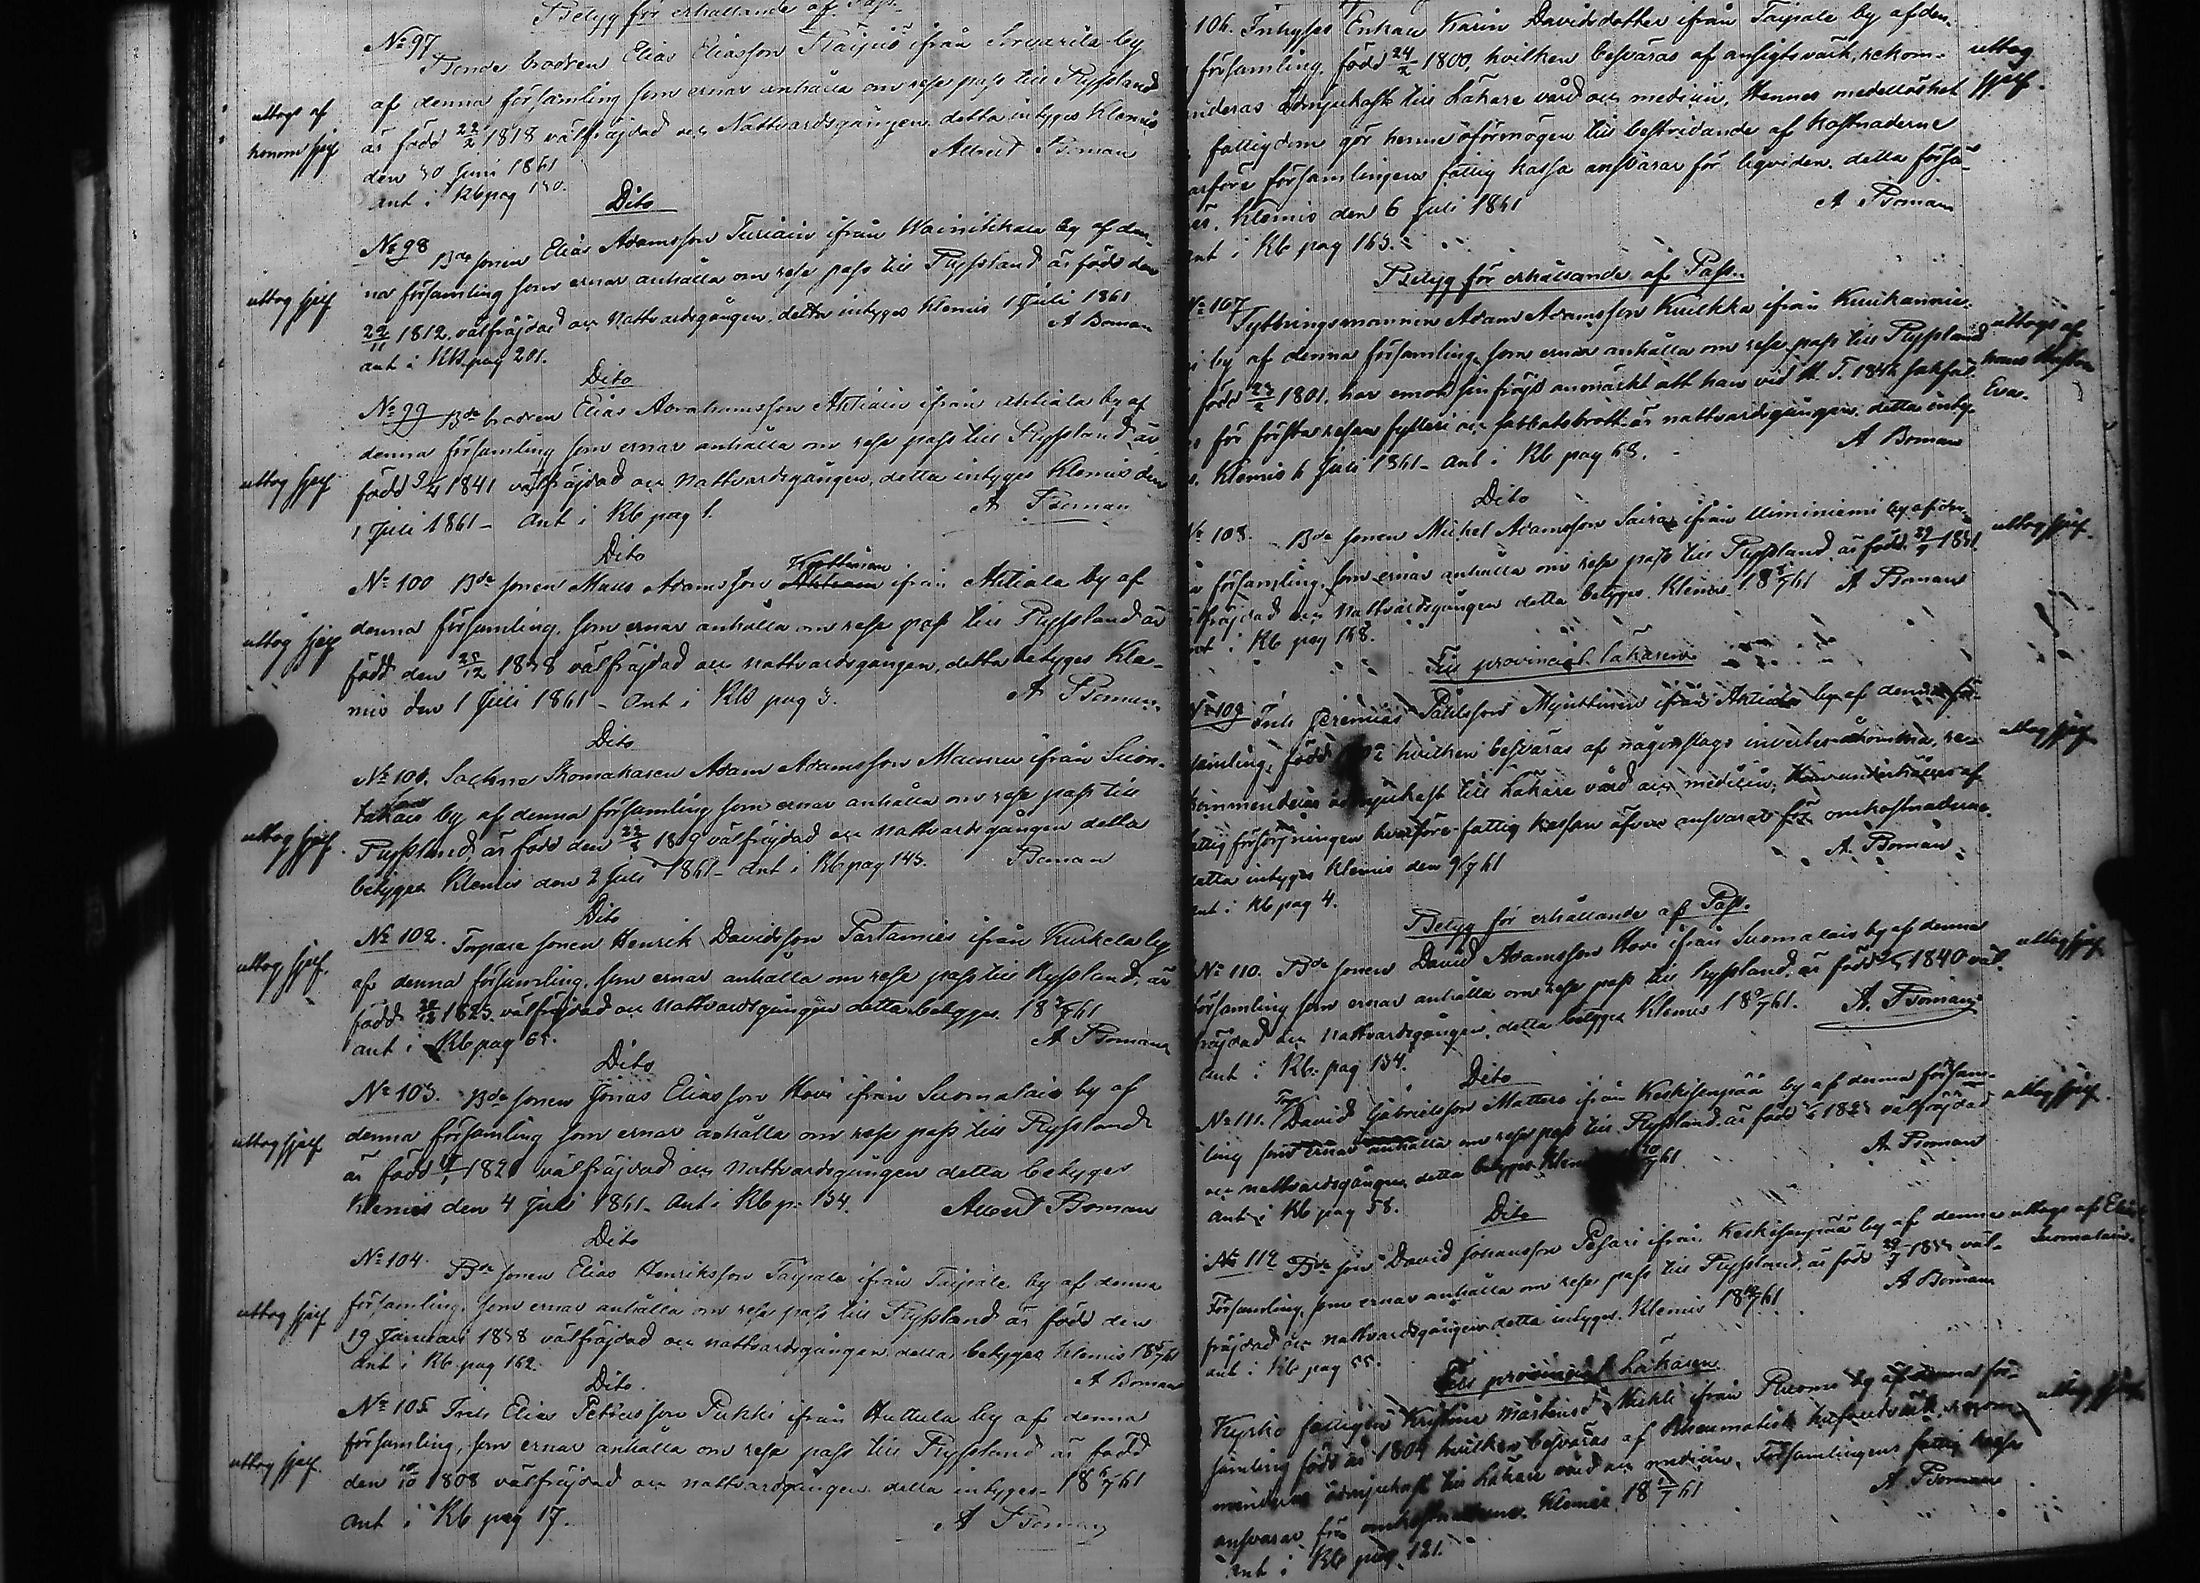 Betyg för erhållande af Pass.
No 97
Bonde brodren Elias Eliasson ifrån by
af denna församling som ernar anhålla om rese pass till Ryssland
är född 22/2 1818 välfräjdad och Nattvardsgången detta intygas Klemis
den 30 Juni 1861 Albert Boman
ant i Kb pag 130.
uttogs af
honom sjelf
Dito
No 98 Bde sonen Elias Adamsson Turiain ifrån Wainikkala by af den-
na församling som ernar anhålla om rese pass till Ryssland är född den
22/11 1812, välfräjdad och Nattvardsgången, detta intygas Klemis 1 Juli 1861
ant i Kb pag 201. A Boman
uttog sjelf
Dito
No 99 Bde brodren Elias Abrahamsson Ahtiain ifrån Ahtiala by af
denna församling som ernar anhålla om rese pass till Ryssland är
född 3/4 1841 välfräjdad och Nattvardsgången, detta intygas Klemis den
1 Juli 1861 - Ant i Kb pag 1. A Boman
uttog sjelf
Dito
No 100 Bde sonen Mats Adamsson ifrån Ahtiala by af
denna församling, som ernar anhålla om rese pass till Ryssland är
född den 25/12 1838 välfräjdad och nattvardsgången, detta betygas Kle-
mis den 1 Juli 1861 - Ant i Kb pag 3. A Boman
uttog sjelf
Dito
No 101. Sockne Skomakaren Adam Adamsson ifrån Suon-
by af denna församling som ernar anhålla om rese pass till
Ryssland, är född den 1809 välfräjdad och Nattvardsgången detta
betygas Klemis den 2 Juli 1861 - Ant i Kb pag 143. Boman
uttog sjelf
Dito
No 102. Torpare sonen Henrik Davidsson Partanies ifrån Kurkela by
af denna församling, som ernar anhålla om rese pass till Ryssland, är
född 1823. välfräjdad och nattvardsgången detta betygas 18 2/7 61
ant i Kb pag 65. A Boman
uttog sjelf.
Dito
No 103. Bde sonen Jonas Eliasson Hovi ifrån Suomalais by af
denna församling som ernar anhålla om rese pass till Ryssland
är född 182 välfräjdad och nattvardsgången detta betygas
Klemis den 4 Juli 1861 - Ant i Kb p. 134. Albert Boman
uttog sjelf
Dito
No 104.
Bde sonen Elias Henriksson Taipale ifrån Taipale by af denna
församling, som ernar anhålla om rese pass till Ryssland är född den
19 Januari 1838 välfräjdad och nattvardsgången detta betygas Klemis 18 5/7 61
ant i Kb pag 162. A Boman
uttog sjelf
Dito.
No 105 Inh Elias Petersson Pukki ifrån Huttula by af denna
församling, som ernar anhålla om rese pass till Ryssland är född
den 10/10 1808 välfräjdad och nattvardsgången detta intygas - 18 6/7 61
ant i Kb pag 17. A Boman
uttog sjelf.
106. Inhyses Enkan Karin Davidsdotter ifrån Taipale by af den-
församling, född 24/2 1800, hvilken besväras af ansigtsvärk, rekom-
nderas ödmjukast till Läkare vård och medicin, Hennes medellöshet
fattigdom gör henne oförmögen till bestridande af kostnaderne
arföre församlingens fattig kassa ansvarar för liqviden, detta försä-
Klemis den 6 Juli 1861 A Boman
nt i Kb pag 163.
uttog
sjelf.
Betyg för erhållande af Pass.
No 107 Adam Adamsson Kuikka ifrån
by af denna församling, som ernar anhålla om rese pass till Ryssland
född 1801, har emot sin fräjd anmärkt att han vid H. T. sakfäl-
för första resan fylleri och sabbatsbrott är nattvardsgången, detta inty-
Klemis 6 Juli 1861 - Ant i Kb pag 68. A Boman
uttogs af
hans
Eva.
Dito
No 108. Bde sonen Mickel Adamsson Saira ifrån by af den-
församling, som ernar anhålla om rese pass till Ryssland, är född
fräjdad och nattvardsgången detta betygas, Klemis 18 /7 61 A Boman
ant i Kb pag 148.
uttog sjelf.
Till provincial Läkaren
No 109 Inh Jeremias Påhlsson ifrån Ahtiala by af denna för-
samling, född hvilken besväras af någon slags invertes åkomma, re-
kommenderas ödmjukast till Läkare vård och medicin,
fattigförsörjningen hvarföre fattig kassan äfven ansvarar för omkostnaderna
detta intygas Klemis den 9/7 61 A. Boman
ant i Kb pag 4.
uttog sjelf
Betyg för erhållande af Pass.
No 110. Bde sonen David Adamsson Hovi ifrån Suomalais by af denna
församling som ernar anhålla om rese pass till Ryssland, är född 1840 väl-
fräjdad och Nattvardsgången, detta betygas Klemis 18 9/7 61. A. Boman
ant i Kb pag 134.
uttog sjelf
Dito
No 111. David Gabrielsson Mattera ifrån Keskisenpää by af denna försam-
ling som ernar anhålla om rese pass till Ryssland, är född välfräjdad
och nattvardsgången detta betygas 10/7 61 A. Boman
ant i Kb pag 58.
uttog sjelf.
Dito
No 112 Bde son David Johansson ifrån Keskisenpää by af denna
Församling, som ernar anhålla om rese pass till Ryssland, är född väl-
fräjdad och nattvardsgången detta intygas Klemis 18 /7 61 A Boman
ant i Kb pag 55.
uttogs af
Suomalain.
Till provincial Läkaren
Kyrko fattigen Kristina Mårtensd ifrån by af denna för-
samling född år 1804 hvilken besväras af Rheumatisk rekom-
menderas ödmjukast till Läkare vård och medicin, Församlingens fattig kassa
ansvarar för omkostnaderna. Klemis 18 /7 61 A. Boman
ant i Kb pag 121.
uttog sjelf